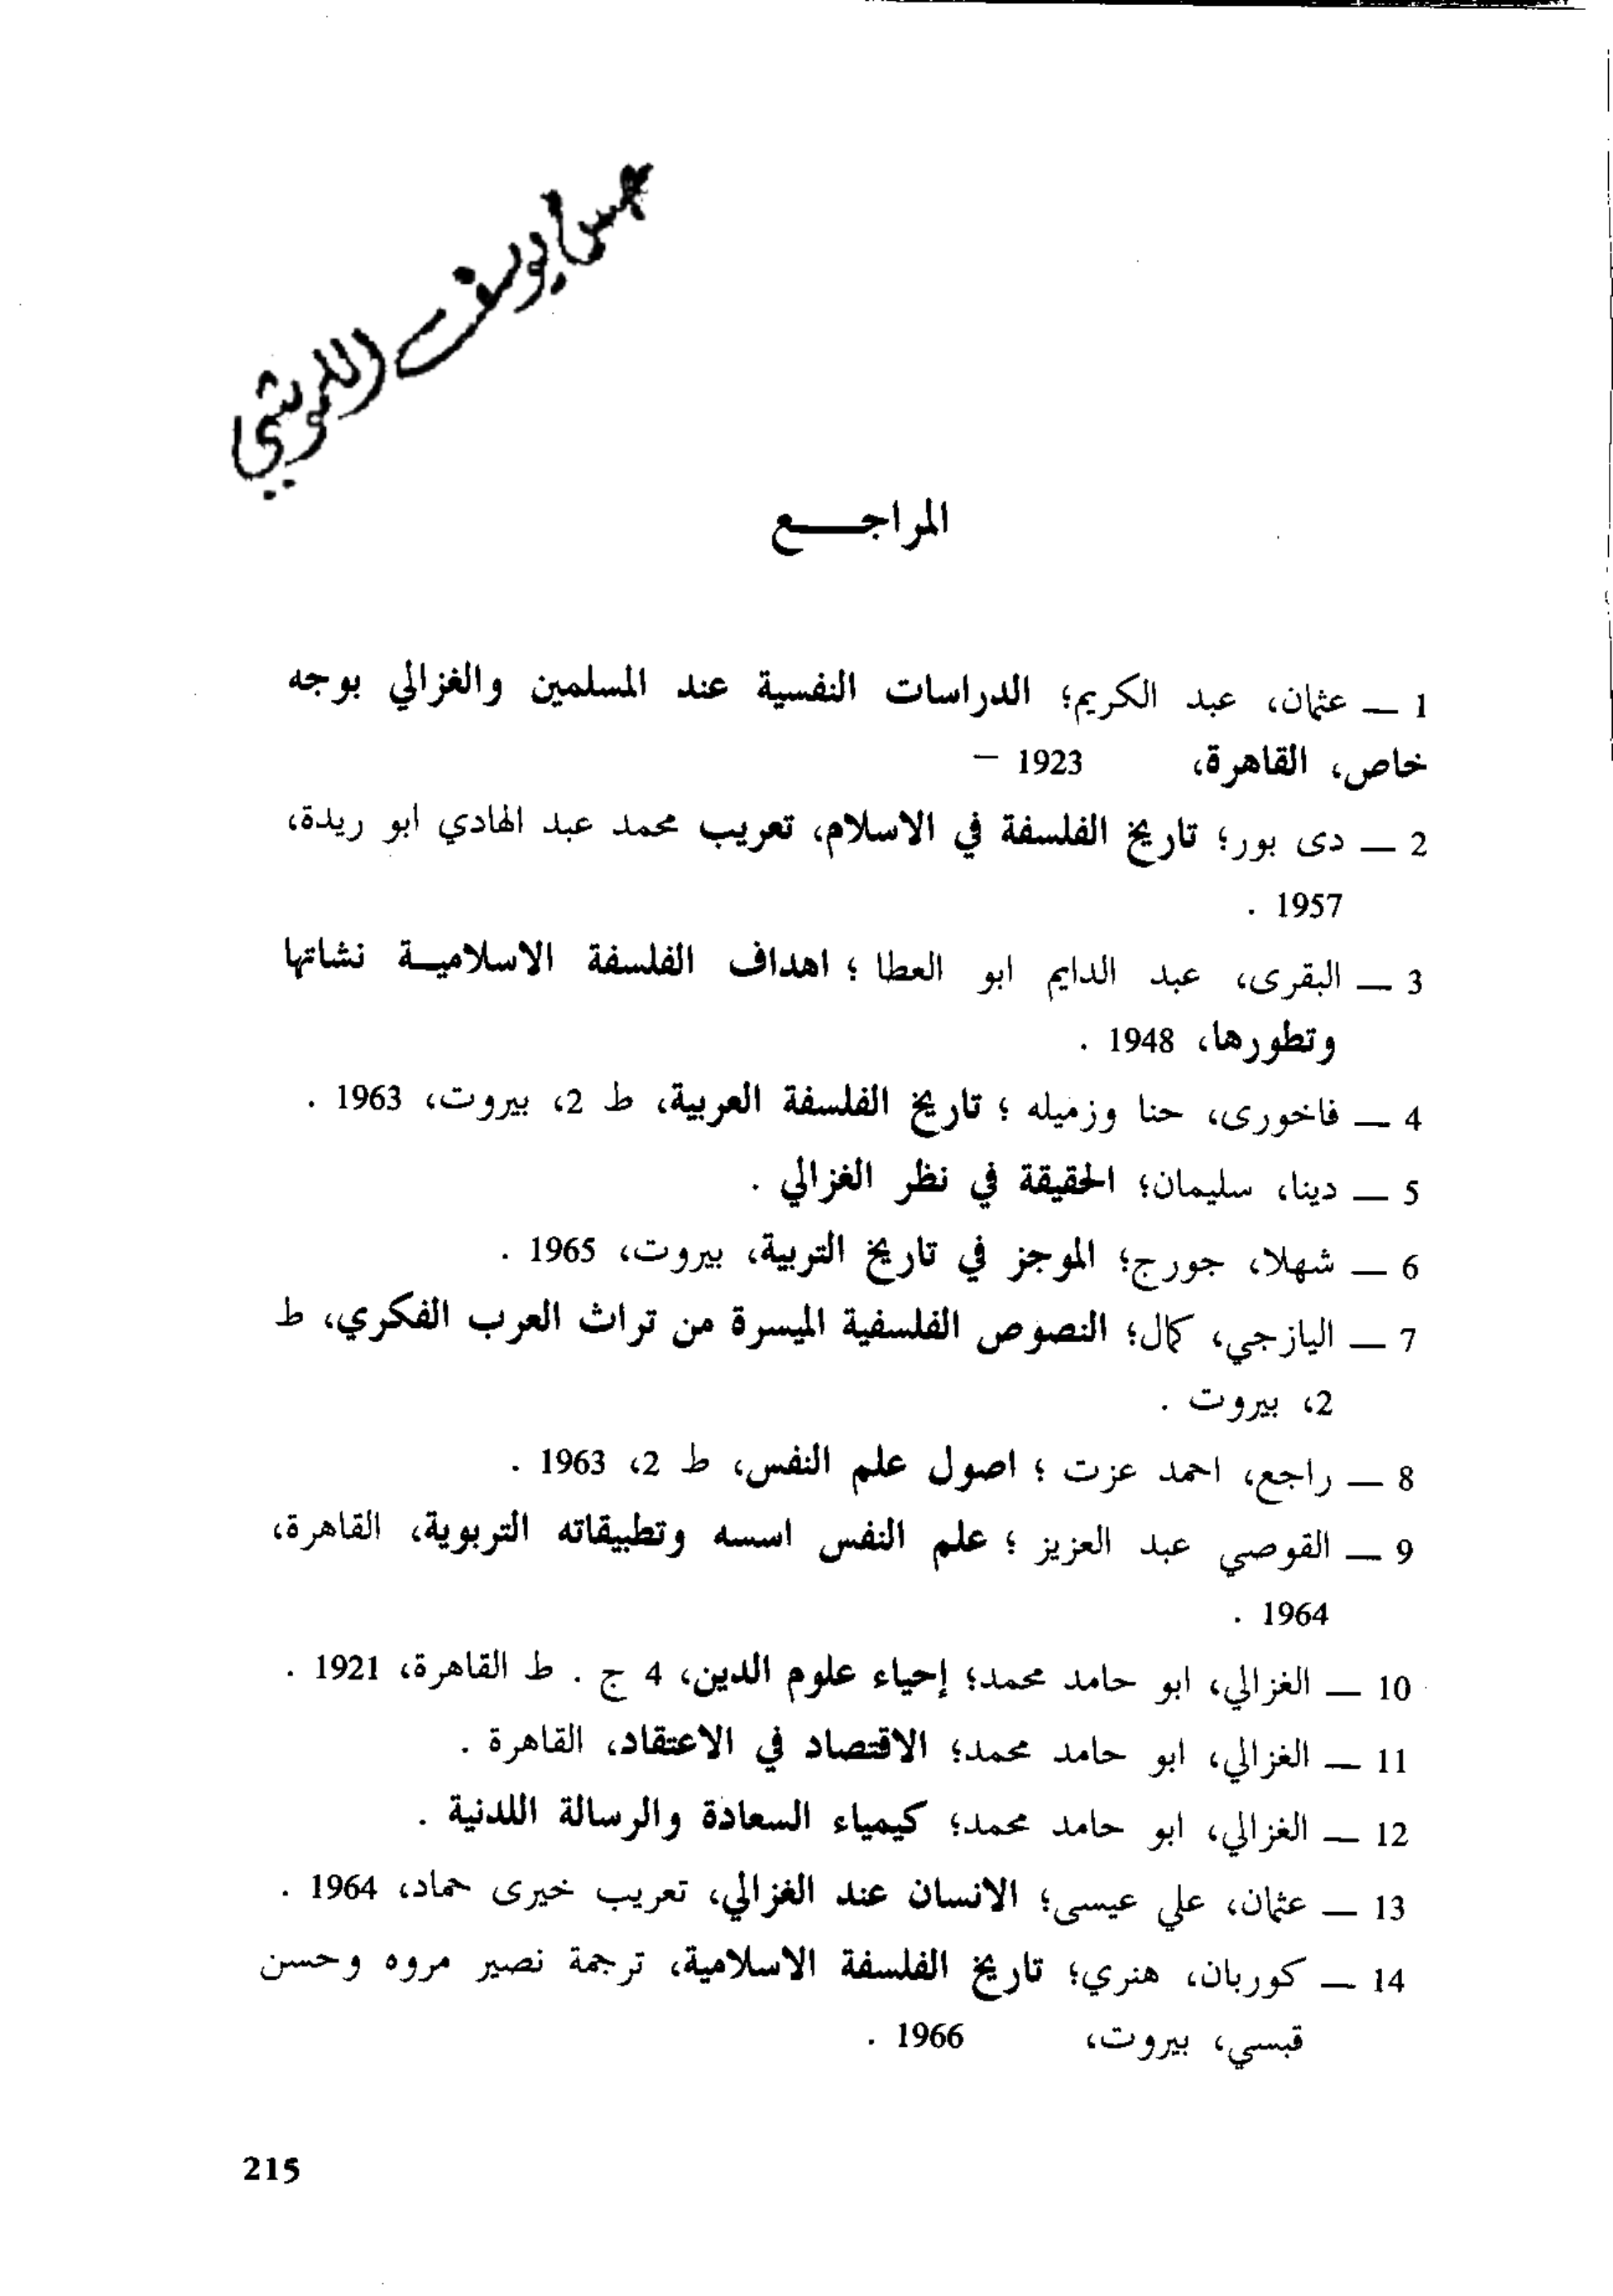 يوسف
المراجع
1 ـ عثمان، عبد الكريم؛ الدراسات النفسية عند المسلمين والغزالي بوجه
خاص، القاهرة، 1923 –
2 ـ دى بور؛ تاريخ الفلسفة في الاسلام، تعريب محمد عبد الهادي ابو ريدة،
1957 .
3 ـ البقرى، عبد الدايم ابو العطا ؛ اهداف الفلسفة الاسلامية نشاتها
وتطورها، 1948 .
4 ـ فاخورى، حنا وزميله ؛ تاريخ الفلسفة العربية، ط 2، بيروت، 1963 .
5 ـ دينا، سليمان؛ الحقيقة في نظر الغزالي .
6 ـ شهلا، جورج؛ الموجز في تاريخ التربية، بيروت، 1965 .
7 ـ اليازجي، كمال؛ النصوص الفلسفية الميسرة من تراث العرب الفكري، ط
2، بيروت .
8 ـ راجع، احمد عزت ؛ اصول علم النفس، ط 2، 1963 .
9 ـ القوصي عبد العزيز ؛ علم النفس اسسه وتطبيقاته التربوية، القاهرة،
1964 .
10 ـ الغزالي، ابو حامد محمد؛ إحياء علوم الدين، 4 ج . ط القاهرة، 1921 .
11 ـ الغزالي، ابو حامد محمد؛ الاقتصاد في الاعتقاد، القاهرة .
12 ـ الغزالي، ابو حامد محمد؛ كيمياء السعادة والرسالة اللدنية .
13 ـ عثمان، علي عيسى؛ الانسان عند الغزالي، تعريب خيرى حماد، 1964 .
14 ـ كوربان، هنري؛ تاريخ الفلسفة الاسلامية، ترجمة نصير مروه وحسن
قبسي، بيروت، 1966 .
215